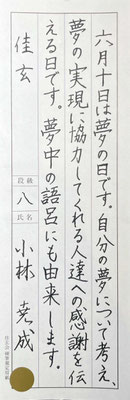 六月十日は夢の日です。自分の夢について考え、
夢の実現に協力してくれる人達への感謝を伝
える日です。夢中の語呂にも由来します。
佳玄
段級
八
氏名
小林 尭成